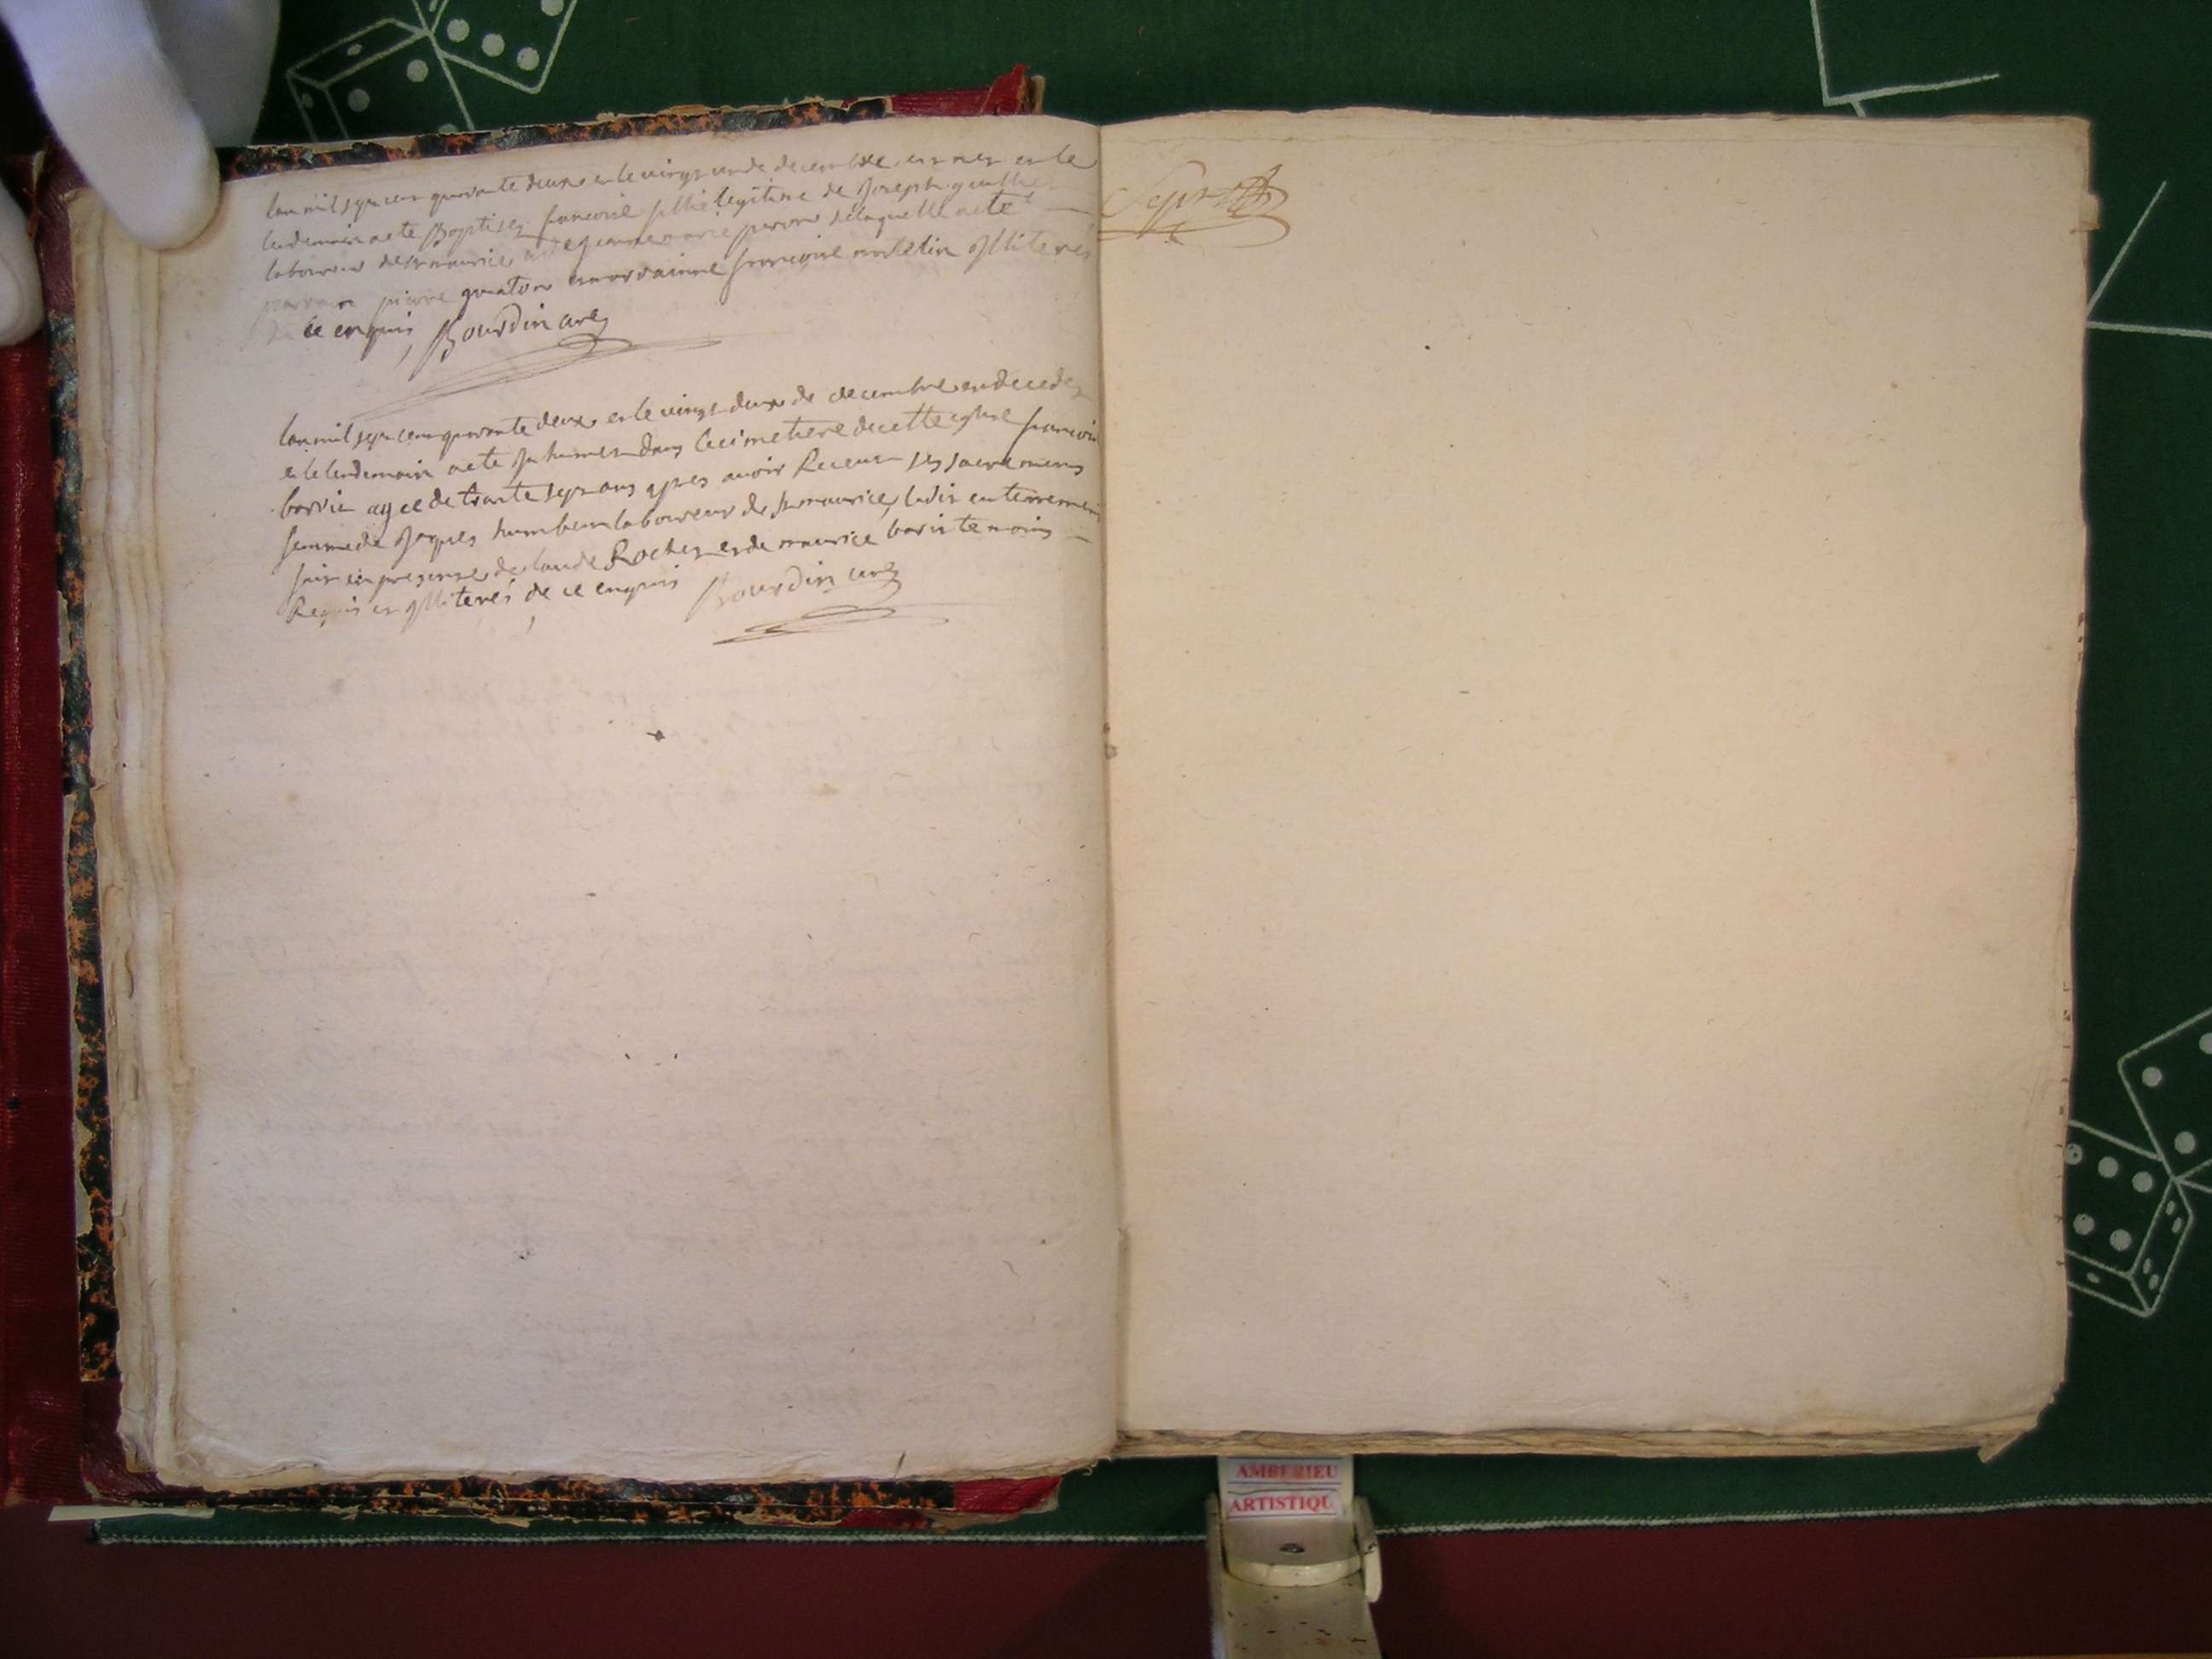 lan mil sept cent quarante deux et le vingt un de decembre est nez et le
lendemain a ete Baptisez francoise fillie legitime de Joseph guillier
laboureur de st maurice et de jeanne marie peron de laquelle a ete
parrain pierre gueston et marrainne francoise illiterés
de ce enquis Bourdin curé
lan mil sept cent quarante deux et le vingt deux de decembre est decedez
et le lendemain a ete Inhumer dans le cimetiere de cette eglise francoise
agee de trante sept ans apres avoir Receut ses sacremens
femme de Jaques humbert laboureur de st maurice, ledit enterrement
fait en presense de claude Rochez et de maurice temoins
Requis et illiterés de ce enquis Bourdin curé
Sept
AMBERIEU
ARTISTIQU